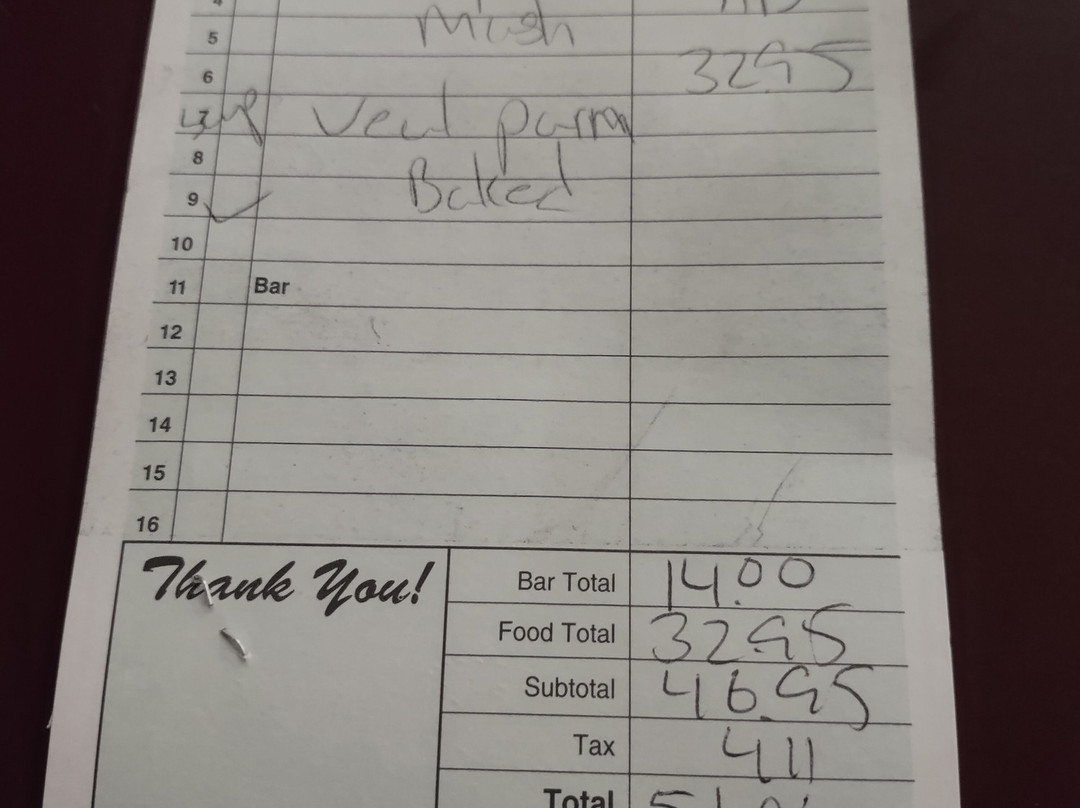 5 Mash
6 32.95
Veal parm
8 Baked
9
10
11 Bar
12
13
14
15
16
Thank You!
Bar Total 14.00
Food Total 32.95
Subtotal 46.95
Tax 4.11
Total